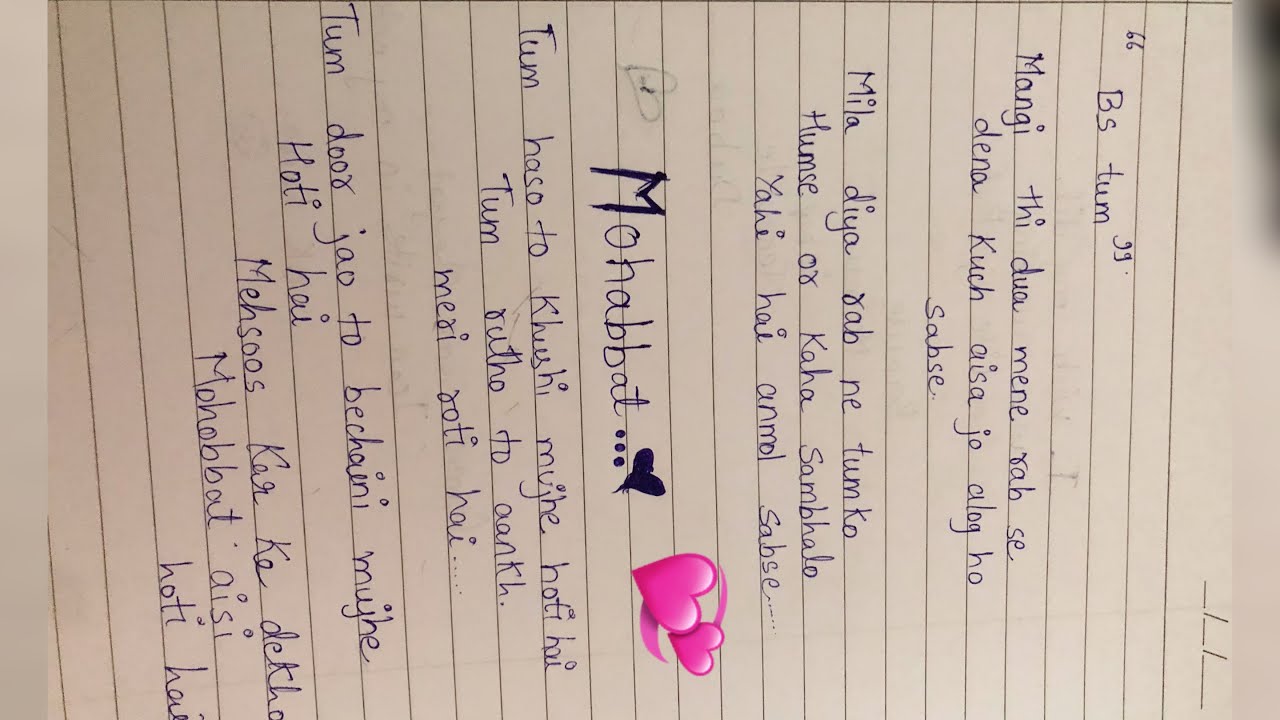 "Bs tum".
Mangi thi dua mene rab se
dena Kuch aisa jo alog ho
Sabse.
Mila diya rab ne tumko
Humse or Kaha Sambhalo
Yahi hai anmol Sabse.....
Mohabbat...
Tum haso to Khushi mujhe hoti hai
Tum rutho to aankh.
meri roti hai.....
Tum door jao to bechaini mujhe
Hoti hai
Mehsoos Kar Ke dekho
Mohobbat aisi
hoti hai